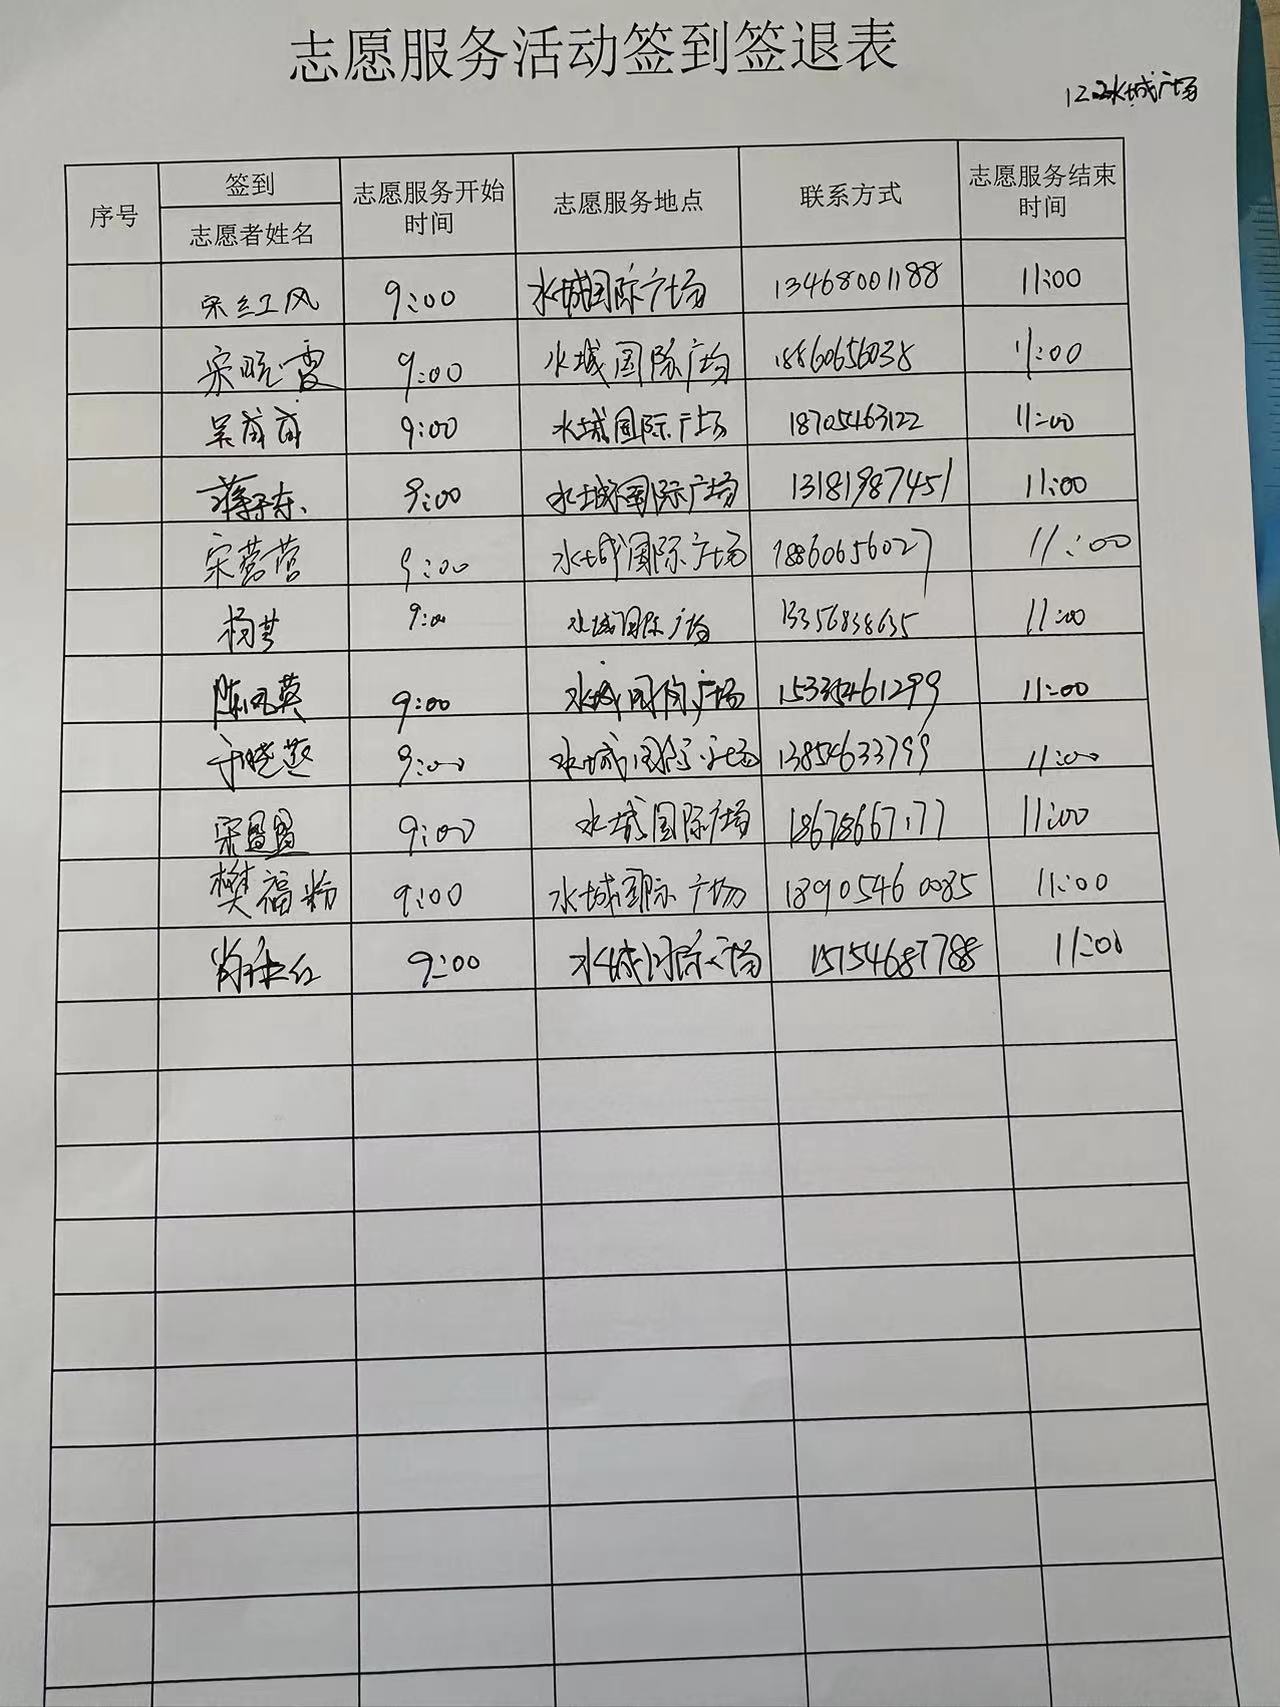 志愿服务活动签到签退表
12.2水城广场
序号 签到 志愿者姓名 志愿服务开始时间 志愿服务地点 联系方式 志愿服务结束时间
宋红风 9:00 水城国际广场 13468001188 11:00
宋晓雪 9:00 水城国际广场 18860656038 11:00
吴成成 9:00 水城国际广场 18705463122 11:00
蒋东 9:00 水城国际广场 13181987451 11:00
宋营营 9:00 水城国际广场 18860656027 11:00
杨芸 9:00 水城国际广场 13356838635 11:00
陈凤英 9:00 水城国际广场 15335461299 11:00
于晓燕 9:00 水城国际广场 13854633799 11:00
宋圆圆 9:00 水城国际广场 18678667177 11:00
樊福粉 9:00 水城国际广场 18905460085 11:00
肖秋红 9:00 水城国际广场 15154687788 11:00